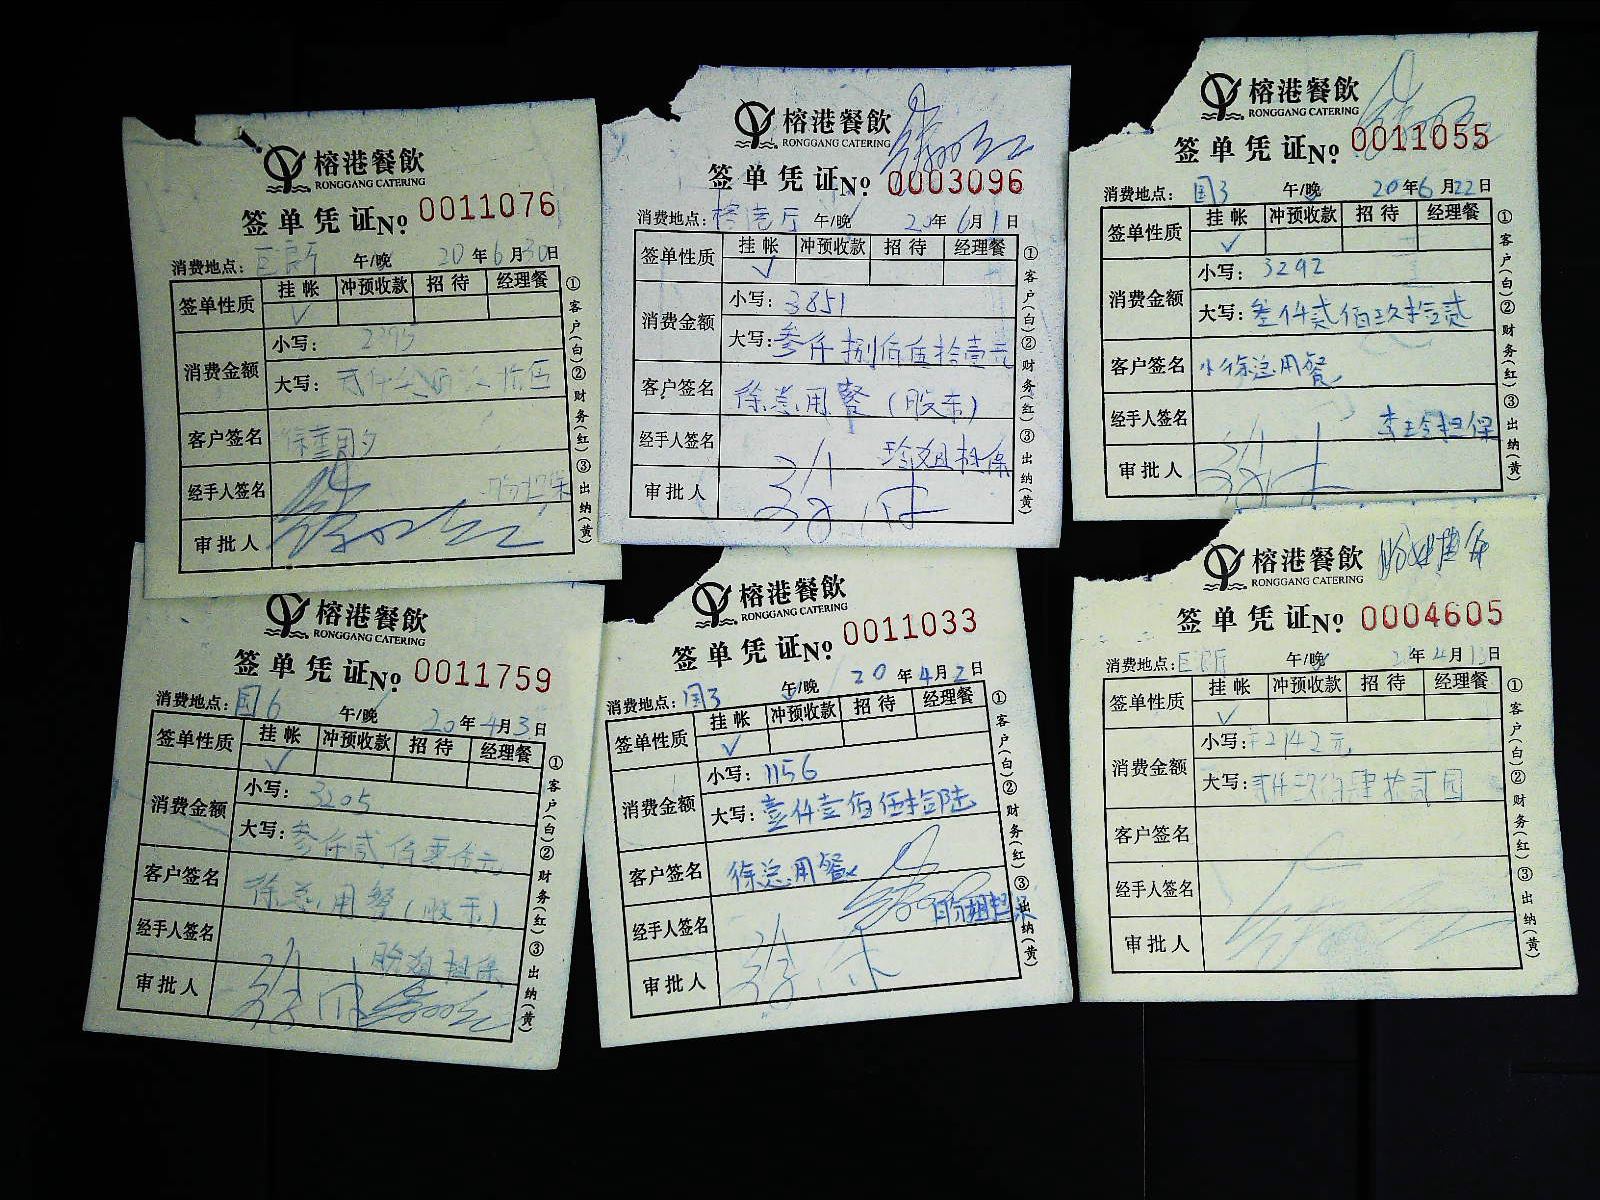 榕港餐飲
RONGGANG CATERING
签单凭证No 0011076
消费地点: 午/晚 20年6月30日
签单性质 挂帐 冲预收款 招待 经理餐
✓
消费金额 小写:
大写:
客户签名
经手人签名
审批人
①客户(白)②财务(红)③出纳(黄)
榕港餐飲
RONGGANG CATERING
签单凭证No 0003096
消费地点:榕港厅 午/晚 20年6月1日
签单性质 挂帐 冲预收款 招待 经理餐
✓
消费金额 小写:3851
大写:叁仟捌佰伍拾壹元
客户签名 徐总用餐(股东)
经手人签名 玲姐担保
审批人
①客户(白)②财务(红)③出纳(黄)
榕港餐飲
RONGGANG CATERING
签单凭证No 0011055
消费地点:国3 午/晚 20年6月22日
签单性质 挂帐 冲预收款 招待 经理餐
✓
消费金额 小写:3292
大写:叁仟贰佰玖拾贰
客户签名 小徐总用餐
经手人签名 担保
审批人
①客户(白)②财务(红)③出纳(黄)
榕港餐飲
RONGGANG CATERING
签单凭证No 0011759
消费地点:国6 午/晚 20年4月3日
签单性质 挂帐 冲预收款 招待 经理餐
✓
消费金额 小写:3205
大写:叁仟贰佰零伍元
客户签名 徐总用餐(股东)
经手人签名 盼姐担保
审批人
①客户(白)②财务(红)③出纳(黄)
榕港餐飲
RONGGANG CATERING
签单凭证No 0011033
消费地点:国3 午/晚 20年4月2日
签单性质 挂帐 冲预收款 招待 经理餐
✓
消费金额 小写:1156
大写:壹仟壹佰伍拾陆
客户签名 徐总用餐
经手人签名 盼姐担保
审批人
①客户(白)②财务(红)③出纳(黄)
榕港餐飲
RONGGANG CATERING
签单凭证No 0004605
消费地点: 午/晚 年4月13日
签单性质 挂帐 冲预收款 招待 经理餐
✓
消费金额 小写:¥2142元
大写:
客户签名
经手人签名
审批人
①客户(白)②财务(红)③出纳(黄)